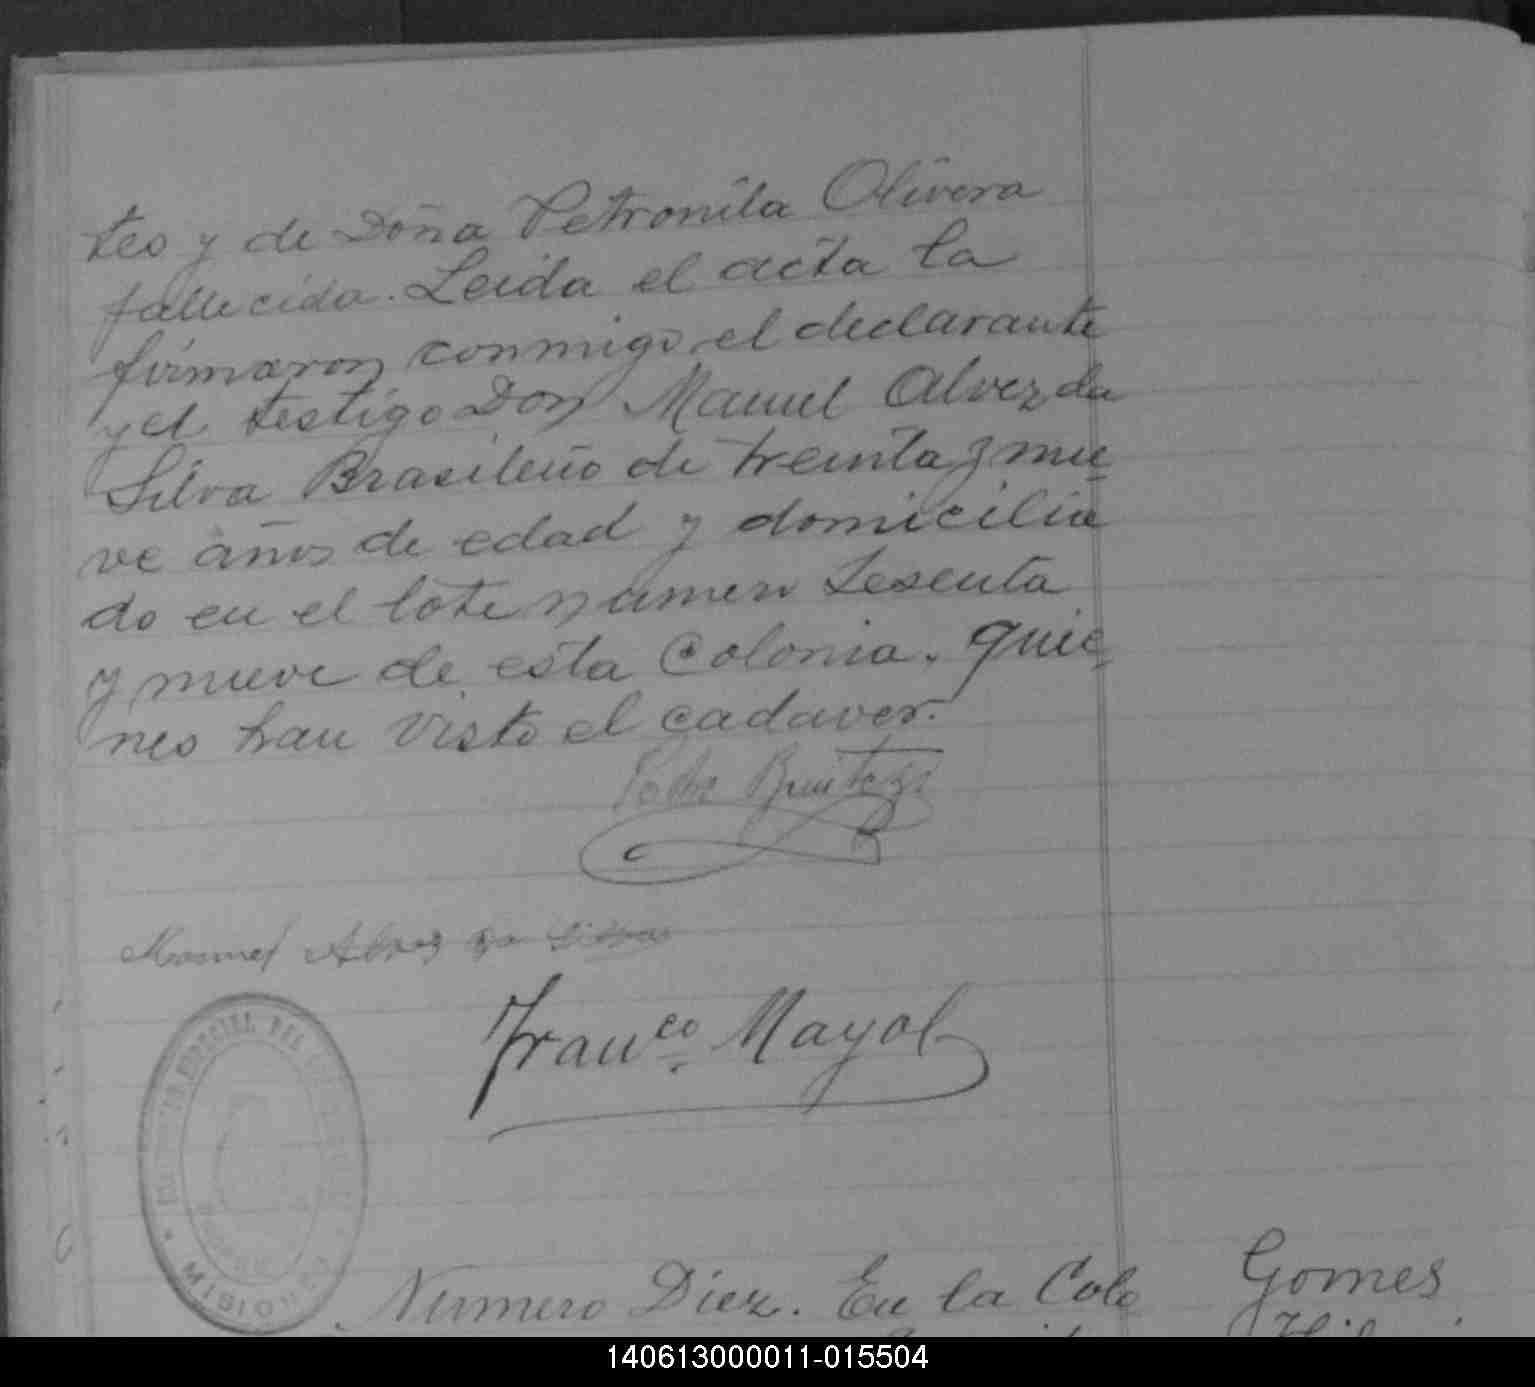 tes y de Doña Petronila Olivera
fallecida. Leida el acta la
firmaron conmigo el declarante
y el testigo Don Manuel Alvez da
Silva Brasileño de treinta y nue
ve años de edad y domicilia
do en el lote numero Sesenta
y nueve de esta Colonia, quie
nes han visto el cadaver.
Pedro Benitez
Manuel Alvez da Silva
Franco. Mayol
MISIONES
Numero Diez. En la Colo
Gomes
140613000011-015504